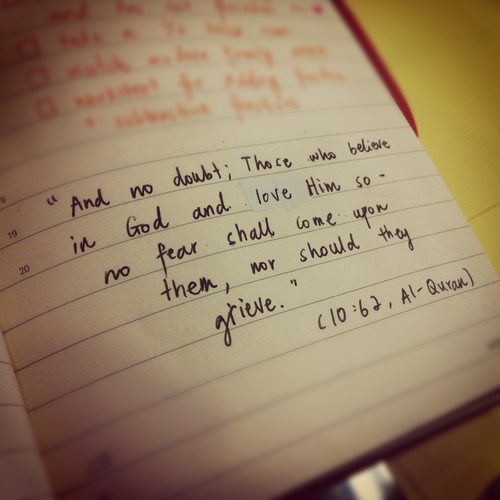 take a
" And no doubt; Those who believe
in God and love Him so -
no fear shall come upon
them, nor should they
grieve. "
(10:62, Al-Quran)
8
19
20